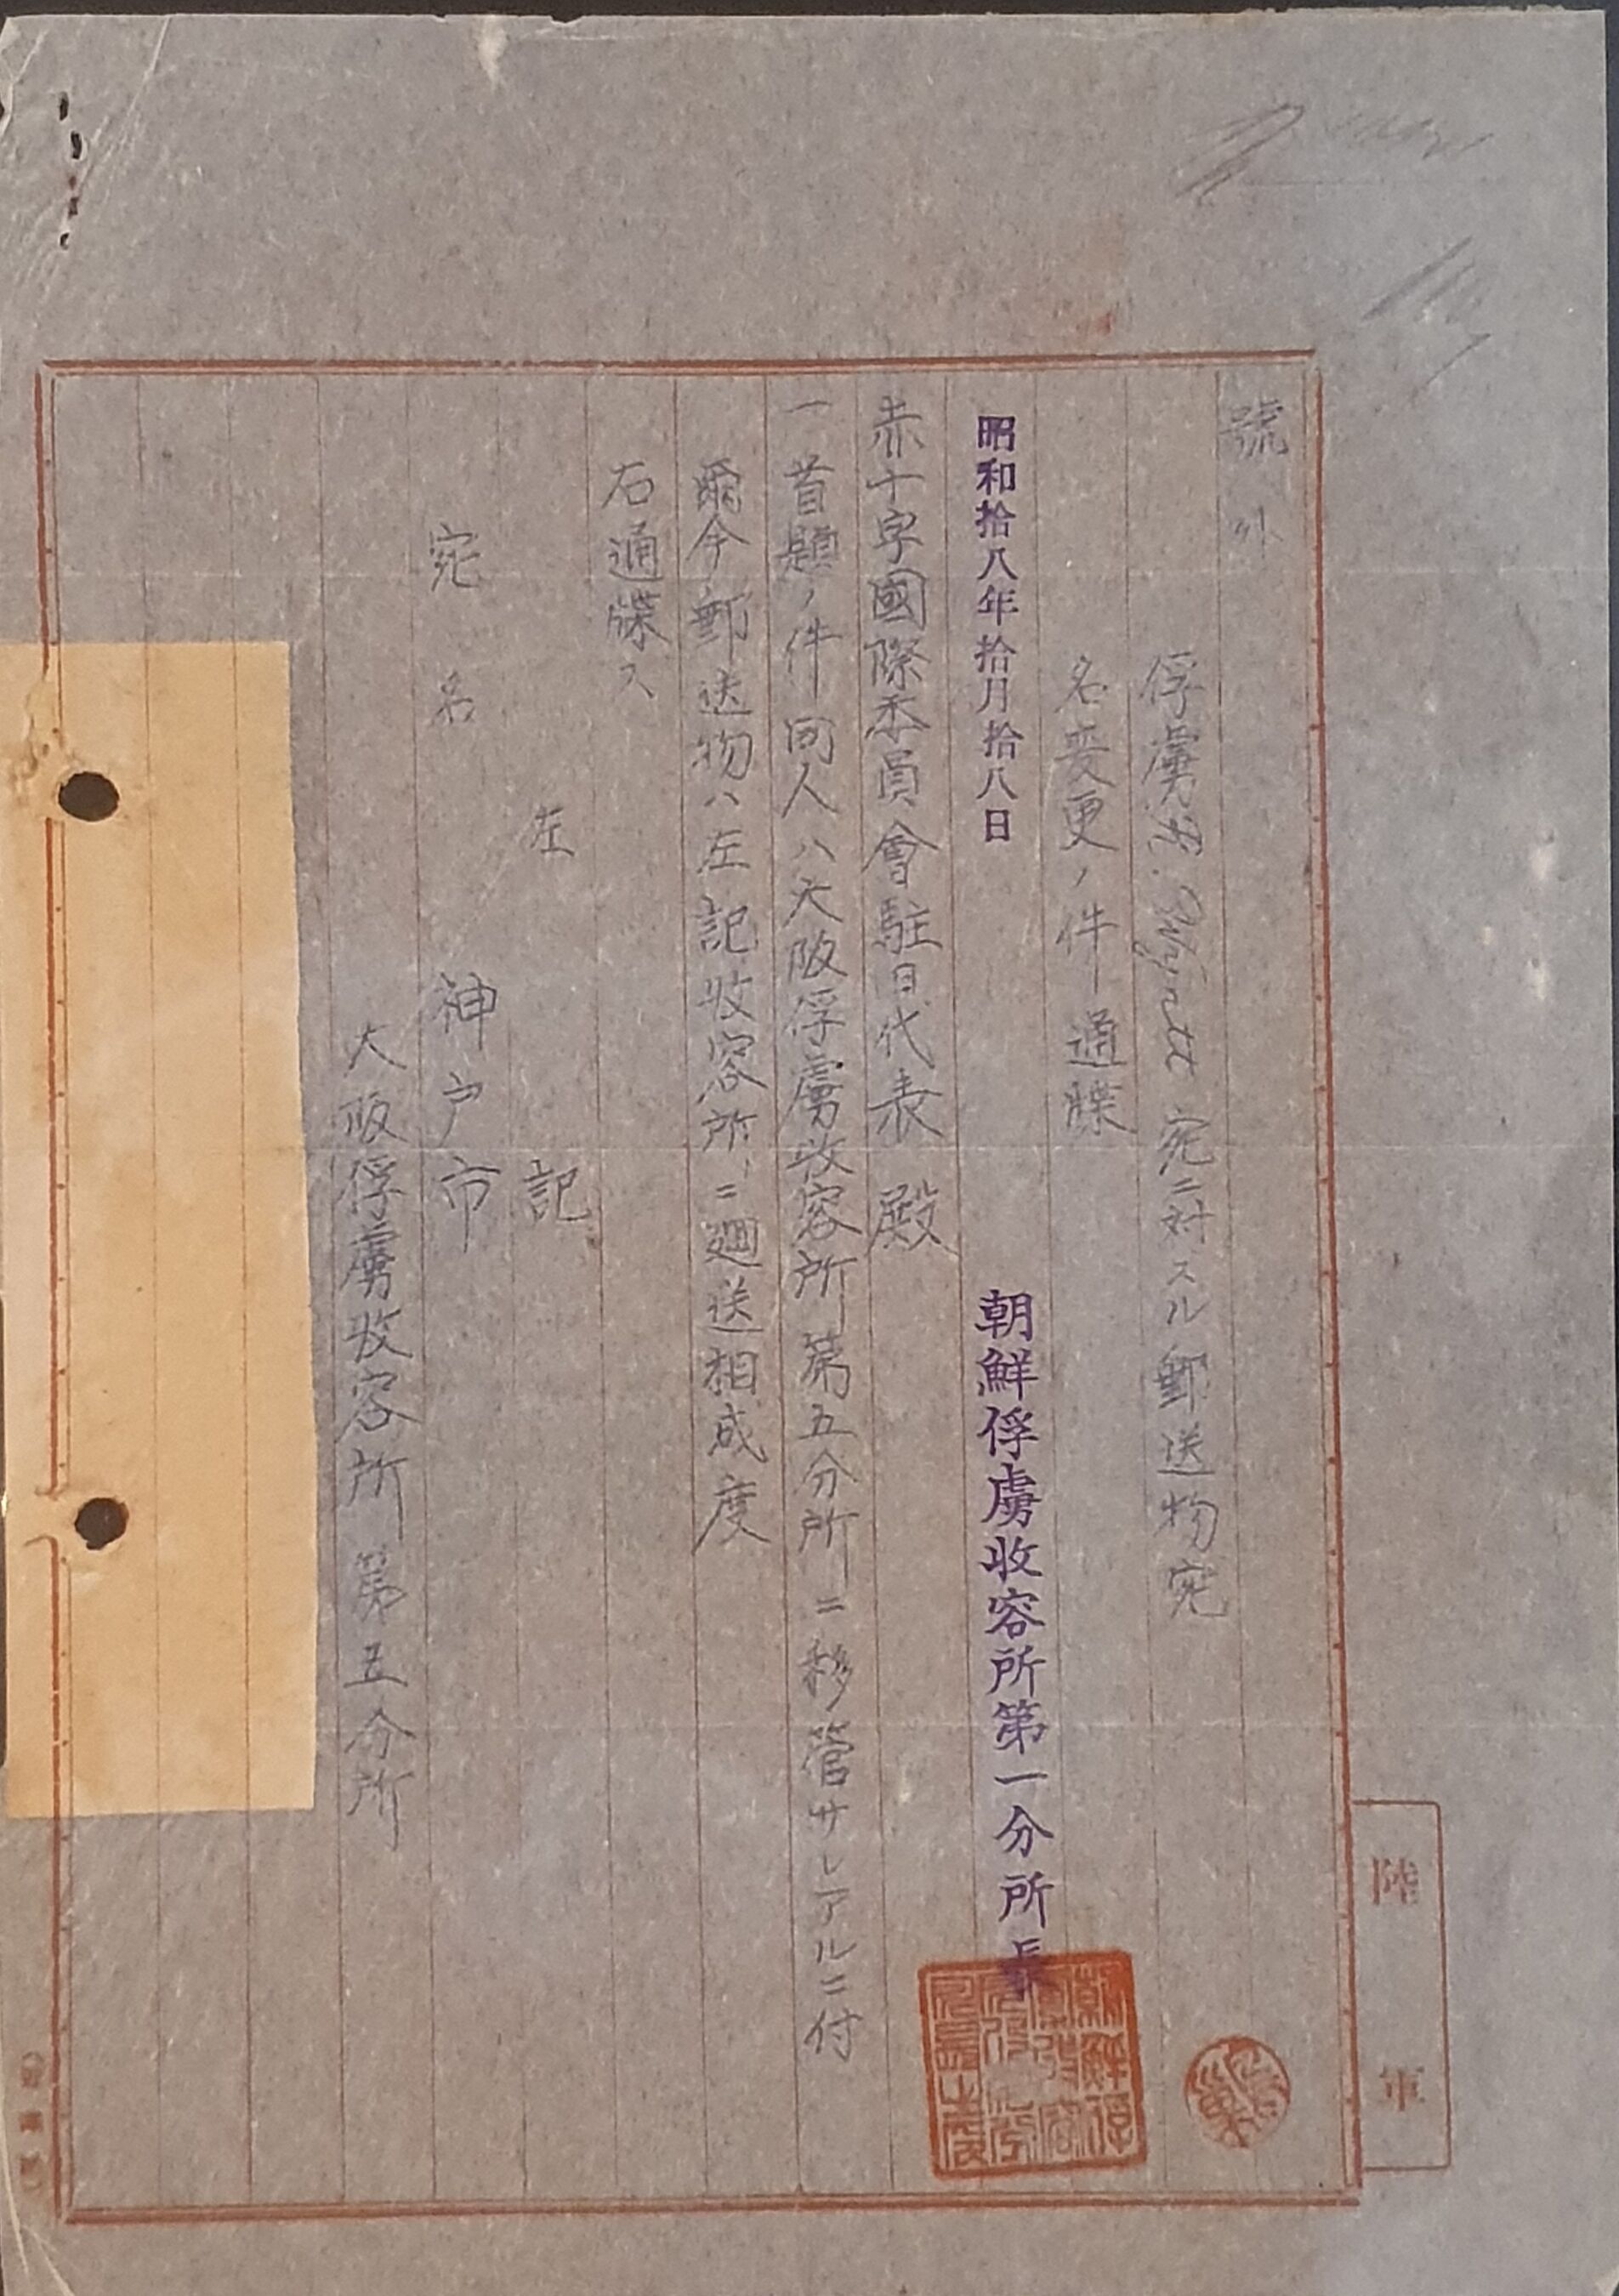 號外
俘虜 宛ニ対スル郵送物宛
名変更ノ件通牒
昭和拾八年拾月拾八日
朝鮮俘虜收容所第一分所長
赤十字國際委員會駐日代表殿
一首題ノ件同人ハ大阪俘虜收容所第五分所ニ移管サレアルニ付
爾今郵送物ハ左記收容所ニ廻送相成度
右通牒ス
左記
宛名 神戸市
大阪俘虜收容所第五分所
陸軍